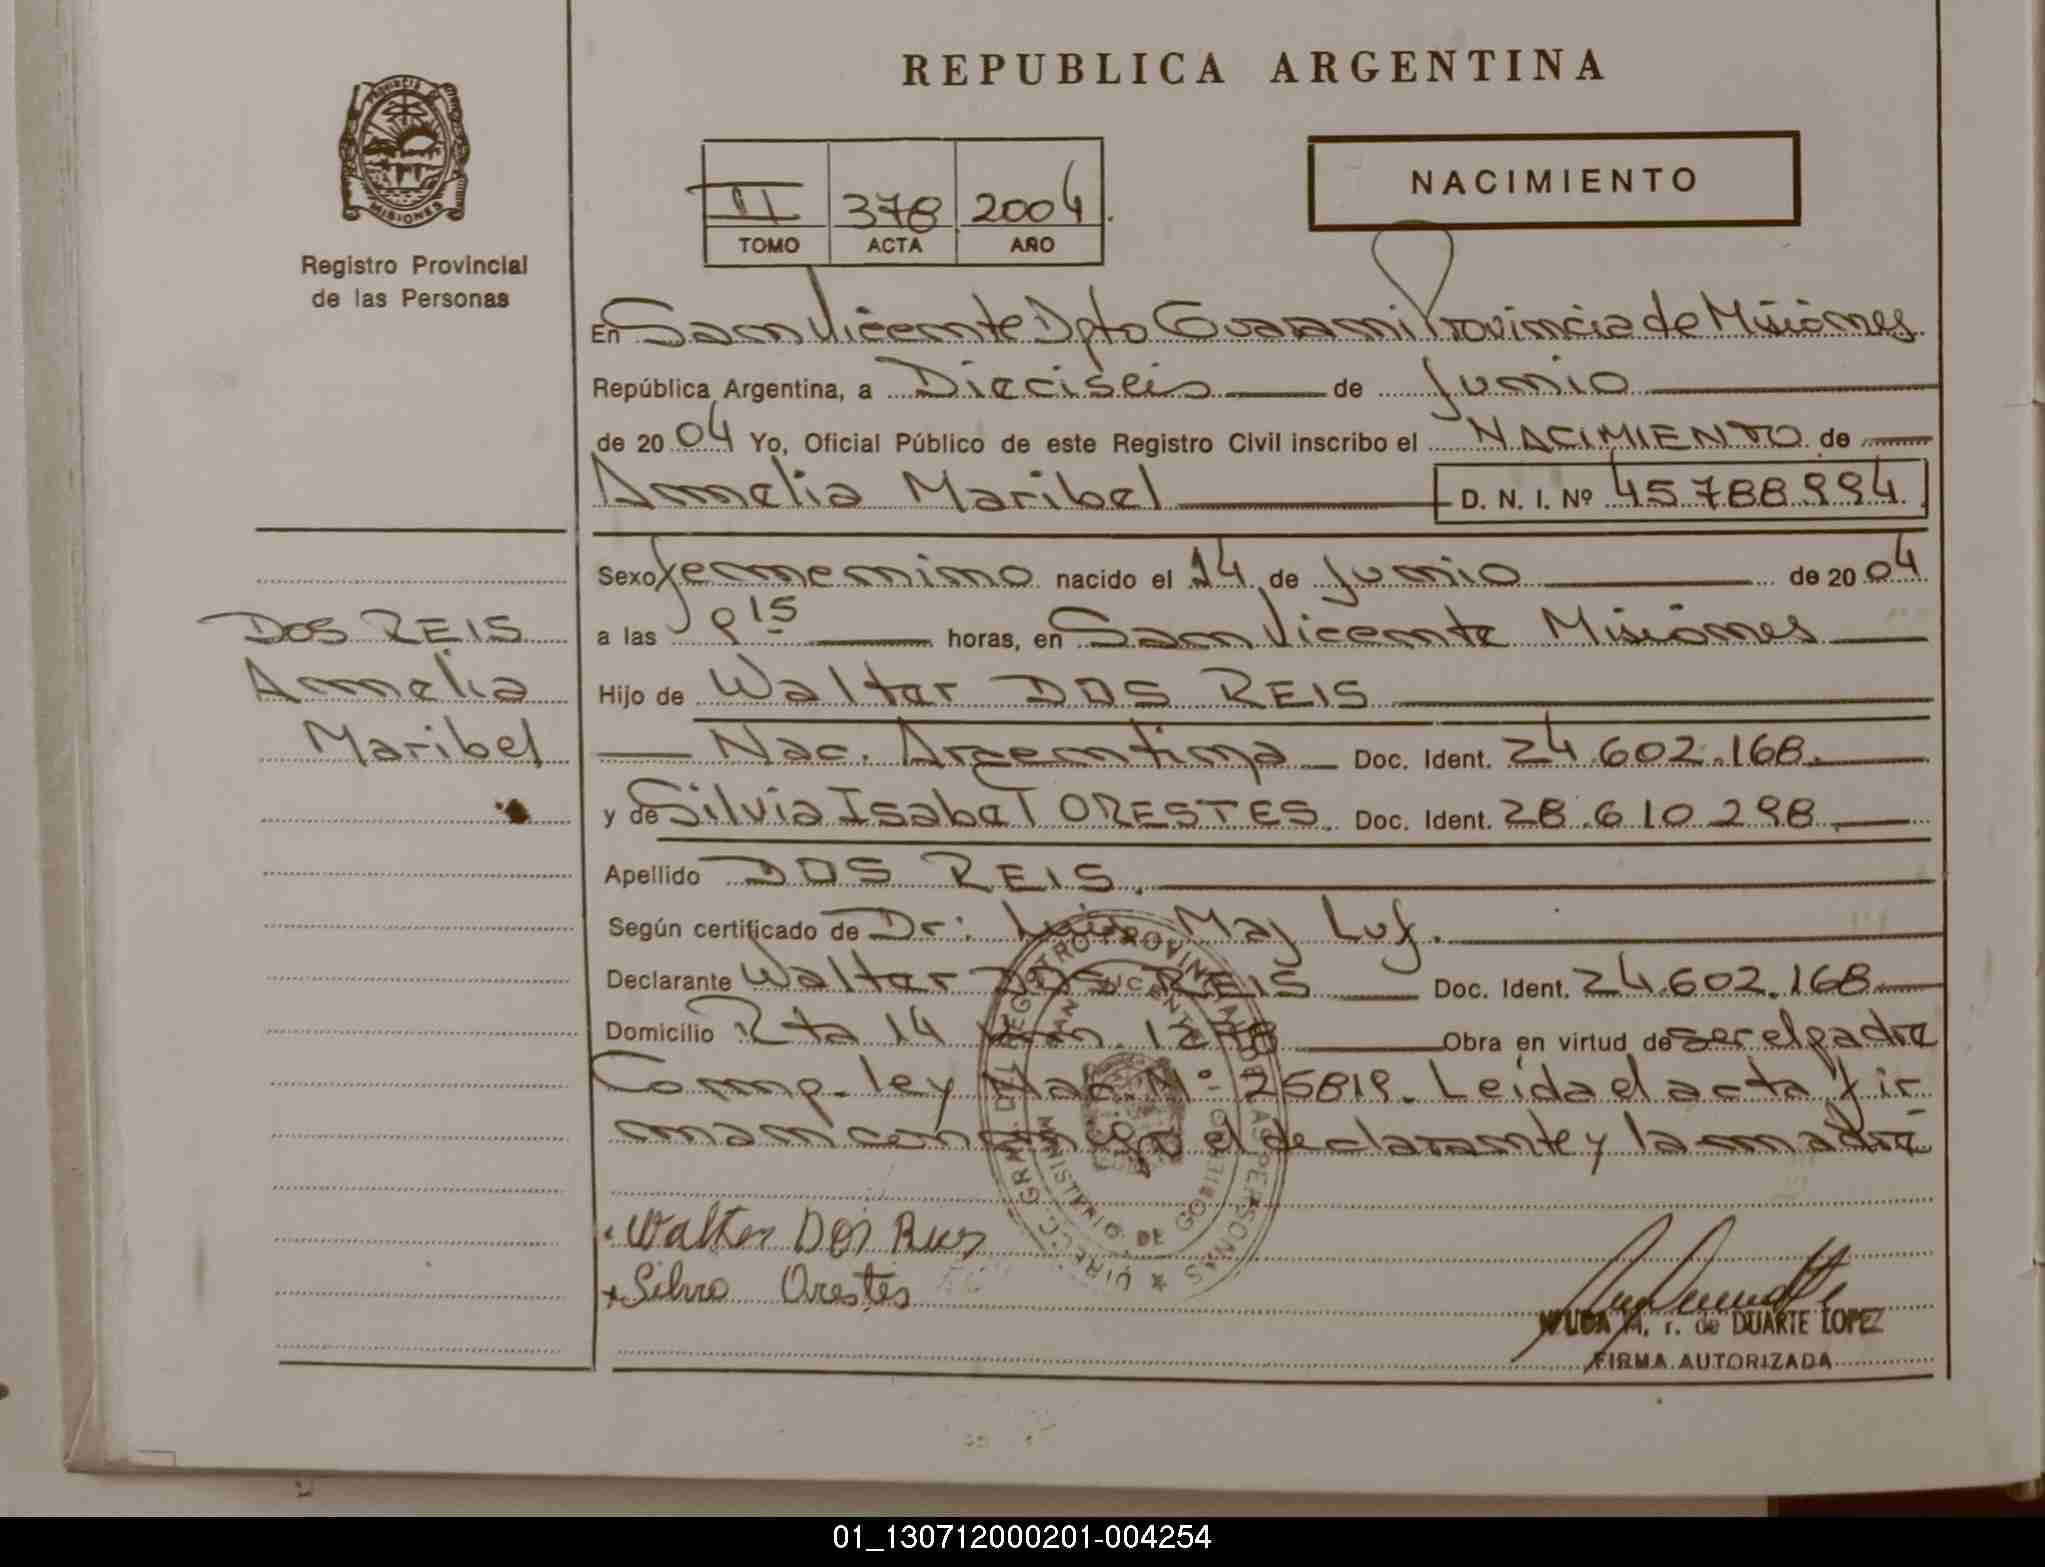 REPUBLICA ARGENTINA
PROVINCIA DE
MISIONES
Registro Provincial
de las Personas
II 378 2004
TOMO ACTA AÑO
NACIMIENTO
En San Vicente Dpto Guarani Provincia de Misiones
República Argentina, a Dieciseis de Junio
de 2004 Yo, Oficial Público de este Registro Civil inscribo el NACIMIENTO de
Annelia Maribel D. N. I. Nº 45.788.994
Sexo femenino nacido el 14 de Junio de 2004
a las 9 15 horas, en San Vicente Misiones
Hijo de Walter DOS REIS
Nac. Argentina Doc. Ident. 24.602.168
y de Silvia Isabel ORESTES Doc. Ident. 28.610.298
Apellido DOS REIS
Según certificado de Dr: Luis
Declarante Walter DOS REIS Doc. Ident. 24.602.168
Domicilio Rta 14 Km. Obra en virtud de ser el padre
Comp. ley Nac. Nº 25819. Leida el acta fir
man conmigo el declarante y la madre
DOS REIS
Annelia
Maribel
DIRECC. GRAL. DEL REGISTRO PROVINCIAL DE LAS PERSONAS
SAN VICENTE
MINISTERIO DE GOBIERNO
Walter Dos Reis
Silvia Orestes
M. r. de DUARTE LOPEZ
FIRMA AUTORIZADA
01_130712000201-004254